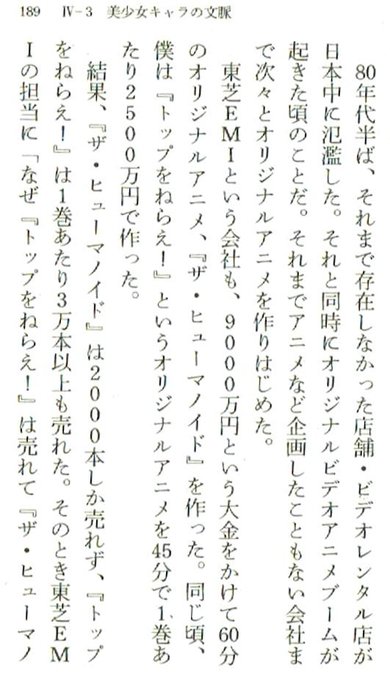 189　Ⅳ-3　美少女キャラの文脈
80年代半ば、それまで存在しなかった店舗・ビデオレンタル店が
日本中に氾濫した。それと同時にオリジナルビデオアニメブームが
起きた頃のことだ。それまでアニメなど企画したこともない会社ま
で次々とオリジナルアニメを作りはじめた。
東芝EMIという会社も、9000万円という大金をかけて60分
のオリジナルアニメ、『ザ・ヒューマノイド』を作った。同じ頃、
僕は『トップをねらえ！』というオリジナルアニメを45分で1巻あ
たり2500万円で作った。
結果、『ザ・ヒューマノイド』は2000本しか売れず、『トップ
をねらえ！』は1巻あたり3万本以上も売れた。そのとき東芝EM
Iの担当に「なぜ『トップをねらえ！』は売れて『ザ・ヒューマノ